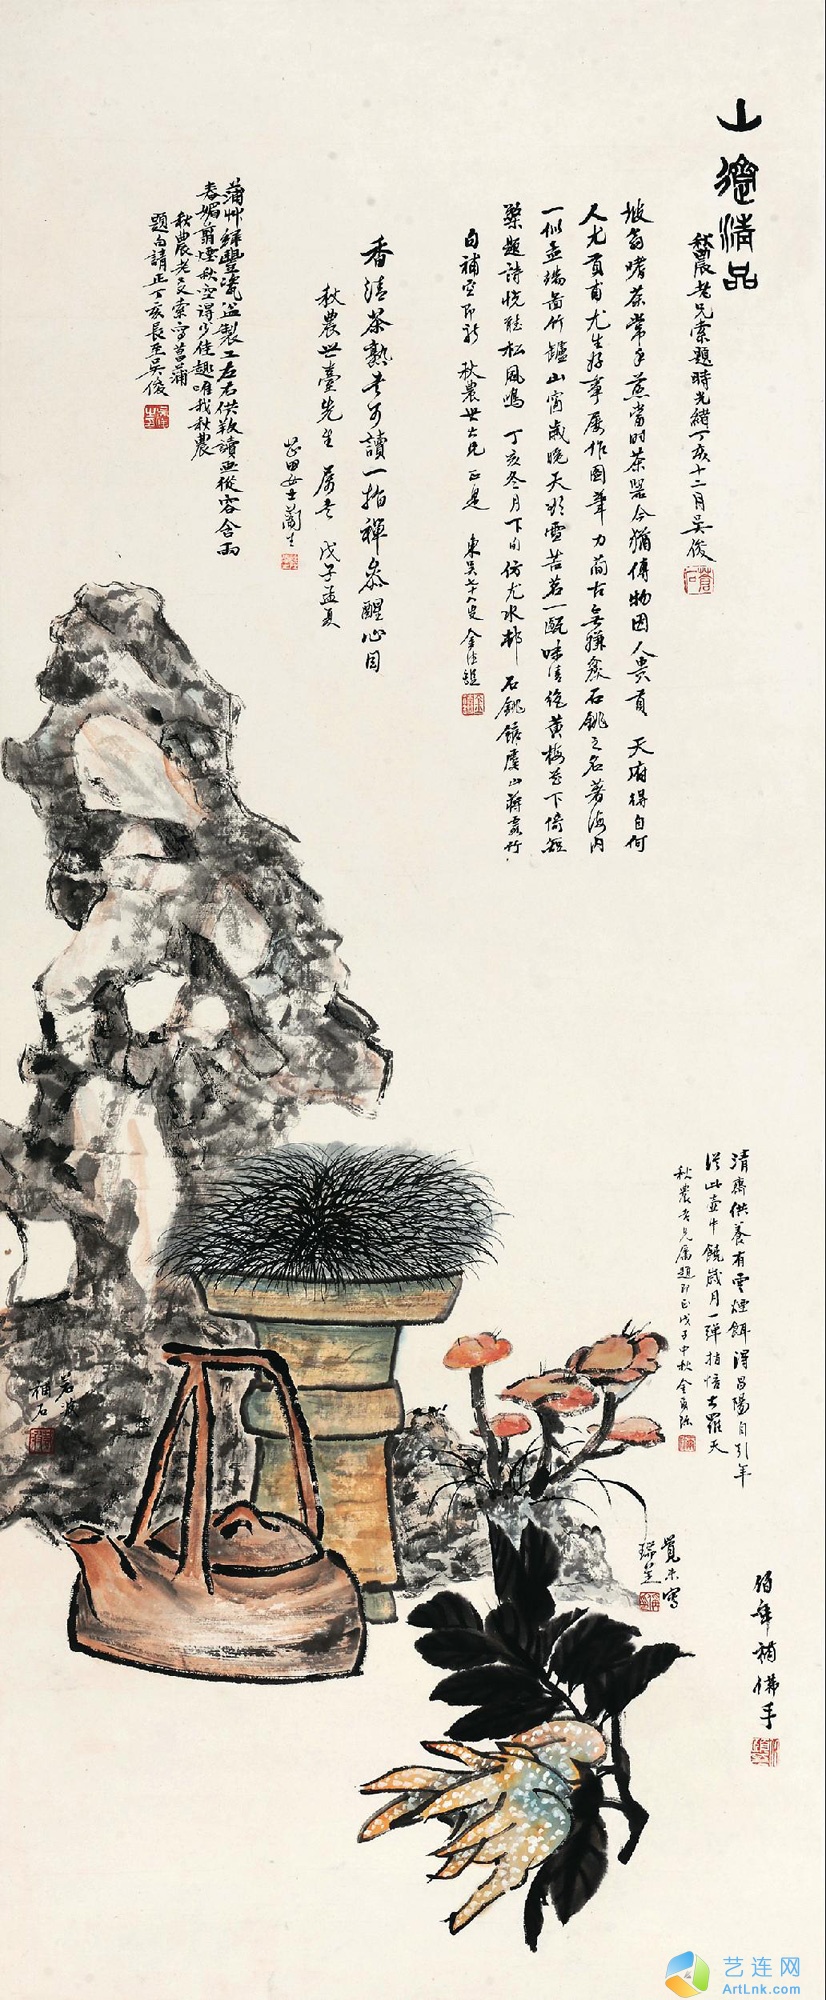 山癯清品
秋農老兄索題時光緒丁亥十二月吳俊
坡翁嗜茶常手煎當時茶器今猶傳物因人貴貢天府得自何
人尤貢甫尤生好事屢作圖筆力簡古無縑彘石銚之名著海內
一似孟端畫竹罏山窗歲晚天欲雪苦茗一甌味清絕黃梅花下倚短
榮題詩恍聽松風鳴丁亥冬月下旬仿尤水邨石銚館虞山蔣霞竹
句補空即祈秋農世大兄正是東吳七十八叟金
香清茶熟書可讀一指禪參醒心目
秋農世臺先生屬書戊子孟夏
芷田女士蘭生
蒲艸鮮豐瓷盆製工左右供殽讀亞從容含雨
春媚翦煙秋空得少佳趣唯我秋農
秋農老友索寫菖蒲
題句請正丁亥長至吳俊
清齋供養有雲煙餌得昌陽自引年
從此壺中饒歲月一彈指悟大羅天
秋農吾兄屬題即正戊子中秋金
若波
補石
覺未寫
瑞芝
伯年補佛手
艺连网
ArtLnk.com